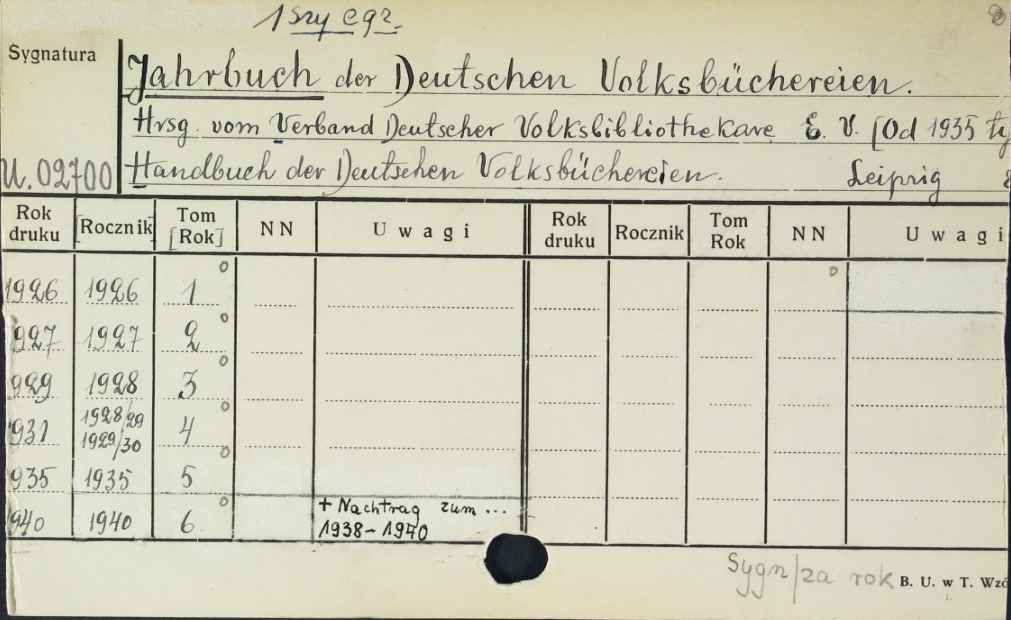 1szy egz.
Sygnatura
Jahrbuch der Deutschen Volksbüchereien.
Hrsg. vom Verband Deutscher Volksbibliothekare E. V. [Od 1935 ty
U. 02700
Handbuch der Deutschen Volksbüchereien. Leipzig
Rok druku [Rocznik] Tom [Rok] NN Uwagi Rok druku Rocznik Tom Rok NN Uwagi
1926 1926 1
1927 1927 2
929 1928 3
931 1928/29 1929/30 4
935 1935 5
940 1940 6 + Nachtrag zum... 1938-1940
Sygn/za rok B. U. w T. Wzó